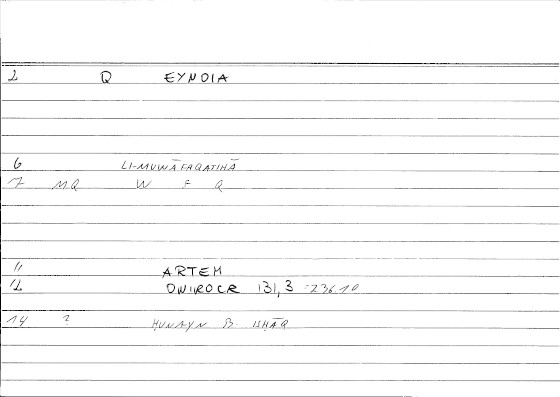 2 Q EYNOIA
6 LI-MUWĀFAQATIHĀ
7 MQ W F Q
11 ARTEM
12 ONIROCR 131,3 23610
14 ? ḤUNAYN B. ISḤĀQ